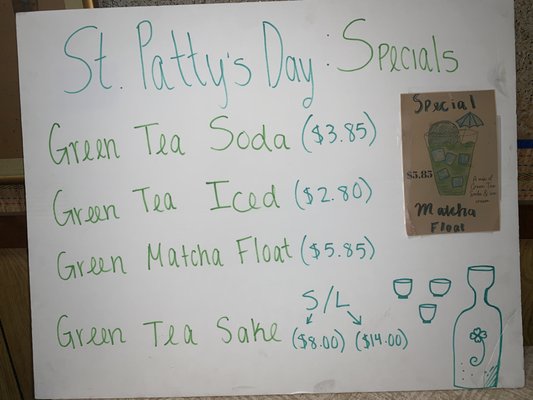 St. Patty's Day: Specials
Green Tea Soda ($3.85)
Green Tea Iced ($2.80)
Green Matcha Float ($5.85)
S/L
Green Tea Sake ($8.00) ($14.00)
Special
$5.85
A mix of
Green Tea
Soda & ice
cream
Matcha
Float